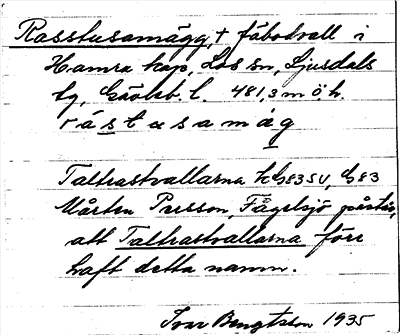 Rasstusamägg, † fäbotvall i
Hamra kap, Los sn, Ljusdals
tg, Gävleb. l. 481,3 m ö. h.
råstusamäg
Talltrastvallarna G83
Mårten Persson, Fågelsjö påstår,
att Talltrastvallarna förr
haft detta namn.
Ivar Bengtsson 1935